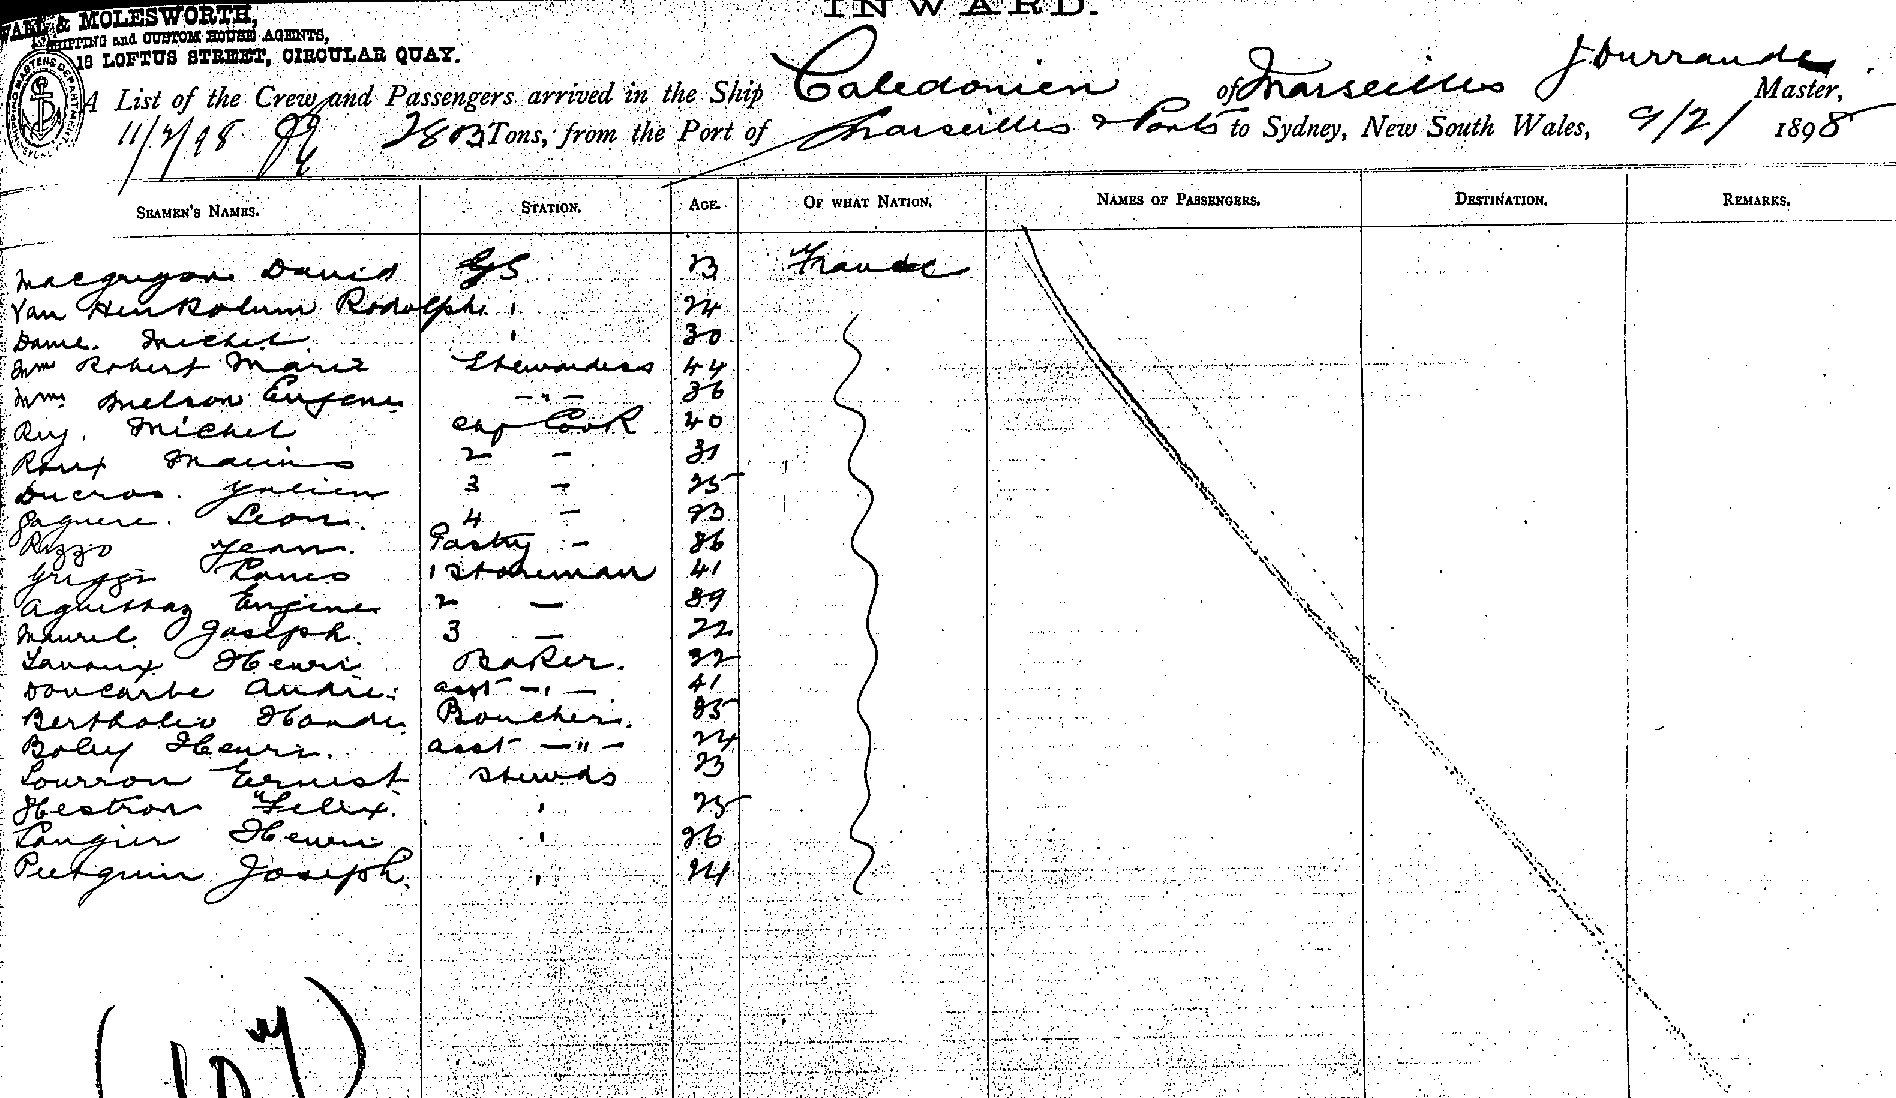 INWARD.
& MOLESWORTH,
SHIPPING and CUSTOM HOUSE AGENTS,
18 LOFTUS STREET, CIRCULAR QUAY.
A List of the Crew and Passengers arrived in the Ship Caledonien of Marseilles J Durrande Master,
11/2/98 2803 Tons, from the Port of Marseilles & Ports to Sydney, New South Wales, 9/2/ 1898
SEAMEN'S NAMES. STATION. AGE. OF WHAT NATION. NAMES OF PASSENGERS. DESTINATION. REMARKS.
Macgregor David GS 23 France
Van Rodolph " 24
Dame. Michel " 30
Mme Robert Marie Stewardess 44
Mme Melson Eugene - " - 36
Rey. Michel Cook 40
Roux Marius 2 - 31
Ducros. Julien 3 - 25
Leon. 4 - 23
Rizzo Jean. Pastry - 36
Louis 1 Storeman 41
Eugene 2 - 39
Maurel. Joseph. 3 - 22
Henri Baker. 22
Doucarbe Andre. asst - " - 41
Boucher. 35
Boley Henri. asst - " - 24
Lourron Ernest Stewds 23
Hestron Felix. " 25
Laugier Henri " 26
Joseph. " 24
(107)